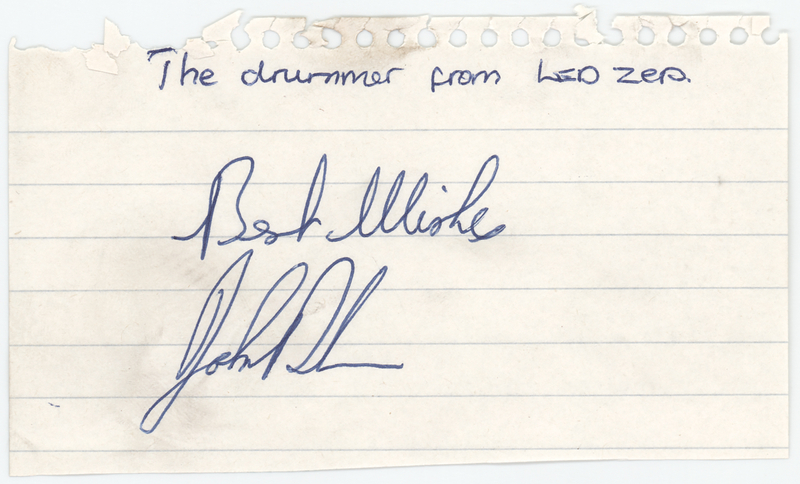 The drummer from LED ZEP.
Best Wishes
John